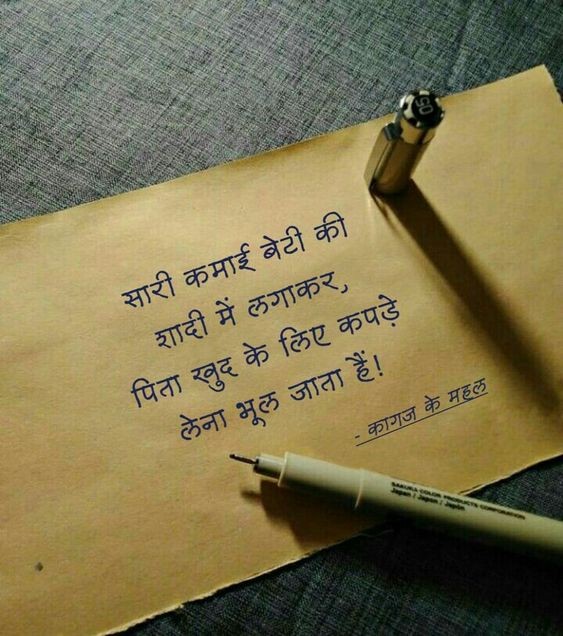 सारी कमाई बेटी की
शादी में लगाकर,
पिता खुद के लिए कपड़े
लेना भूल जाता हैं!
- कागज के महल
05
SAKURA COLOR PRODUCTS CORPORATION
Japan / Japan / Japón